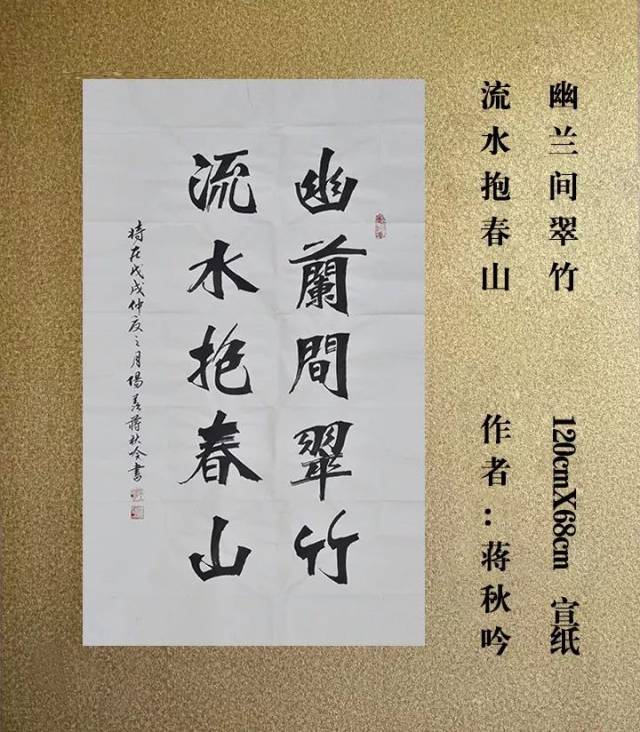 幽兰间翠竹
120cmX68cm 宣纸
流水抱春山
作者：蒋秋吟
幽蘭間翠竹
流水抱春山
時在戊戌仲夏之月陽羨蔣秋吟書